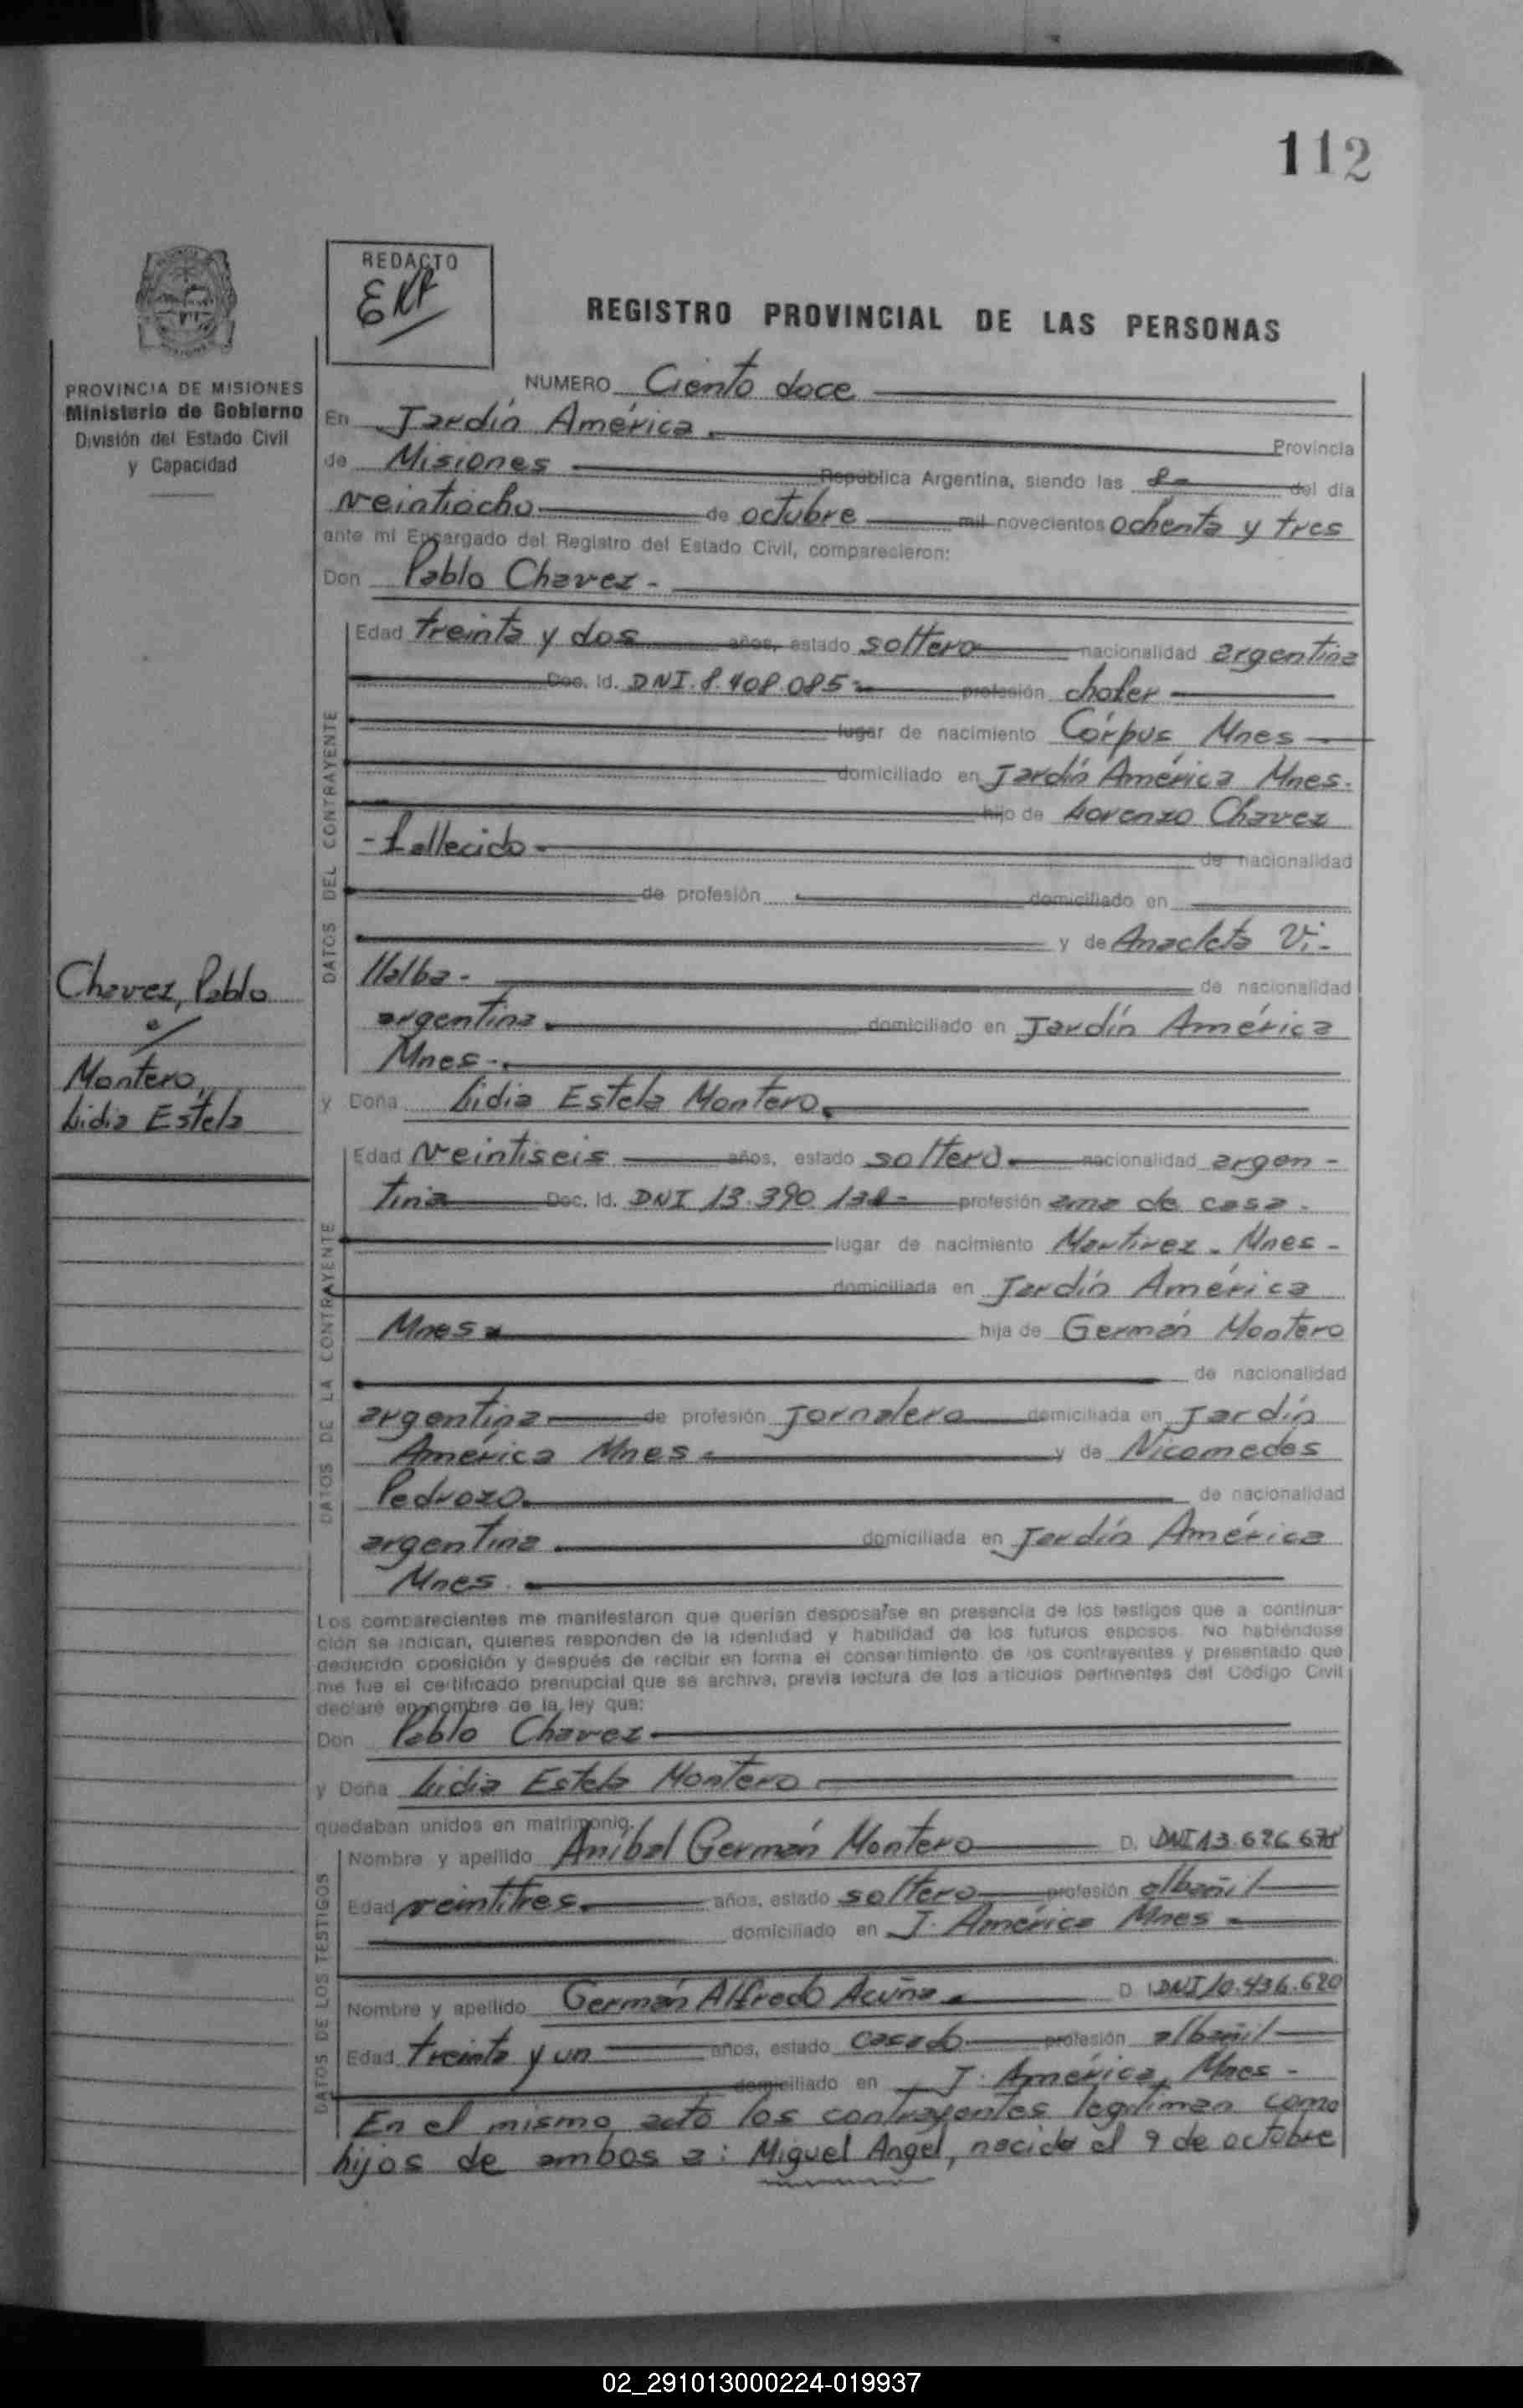 112
REDACTO
REGISTRO PROVINCIAL DE LAS PERSONAS
PROVINCIA DE MISIONES
Ministerio de Gobierno
División del Estado Civil
y Capacidad
NUMERO Ciento doce
En Jardín América. Provincia
de Misiones República Argentina, siendo las 8- del día
veintiocho de octubre mil novecientos ochenta y tres
ante mí Encargado del Registro del Estado Civil, comparecieron:
Don Pablo Chavez -
Edad treinta y dos años, estado soltero nacionalidad argentina
Doc. Id. DNI. 8.408.085- profesión chofer
lugar de nacimiento Córpus Mnes
domiciliado en Jardín América Mnes.
hijo de Lorenzo Chavez
- fallecido - de nacionalidad
de profesión domiciliado en
y de Anacleta Vi-
llalba - de nacionalidad
argentina. domiciliado en Jardín América
Mnes -
DATOS DEL CONTRAYENTE
Chavez, Pablo
c/
Montero,
Lidia Estela
y Doña Lidia Estela Montero.
Edad veintiseis años, estado soltero nacionalidad argen-
tina Doc. Id. DNI 13.390. profesión ama de casa.
lugar de nacimiento Martirez. Mnes -
domiciliada en Jardín América
Mnes hija de Germán Montero
de nacionalidad
argentina de profesión jornalero domiciliada en Jardín
América Mnes - y de Nicomedes
Pedrozo. de nacionalidad
argentina. domiciliada en Jardín América
Mnes.
DATOS DE LA CONTRAYENTE
Los comparecientes me manifestaron que querían desposarse en presencia de los testigos que a continua-
ción se indican, quienes responden de la identidad y habilidad de los futuros esposos. No habiéndose
deducido oposición y después de recibir en forma el consertimiento de los contrayentes y presentado que
me fue el certificado prenupcial que se archiva, previa lectura de los artículos pertinentes del Código Civil
declaré en nombre de la ley que:
Don Pablo Chavez
y Doña Lidia Estela Montero
quedaban unidos en matrimonio.
Nombre y apellido Aníbal Germán Montero D. DNI 13.626.
Edad veintitres. años, estado soltero profesión albañil
domiciliado en J. América Mnes
Nombre y apellido Germán Alfredo Acuña. D. I. DNI 10.436.620
Edad treinta y un años, estado casado profesión albañil
domiciliado en J. América, Mnes -
DATOS DE LOS TESTIGOS
En el mismo acto los contrayentes legitiman como
hijos de ambos a: Miguel Angel, nacido el 9 de octubre
02_291013000224-019937